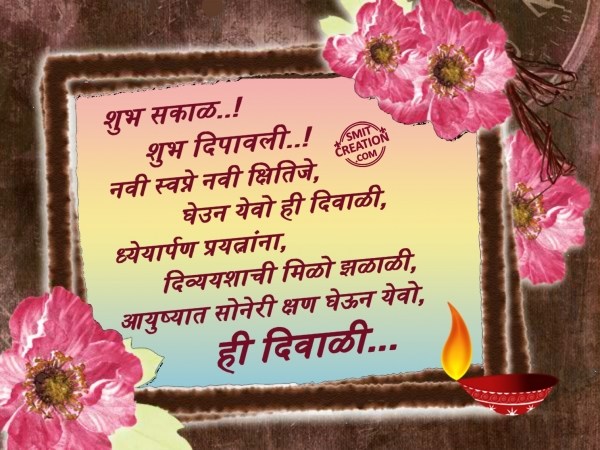 शुभ सकाळ..!
शुभ दिपावली..!
SMIT
CREATION
.COM
नवी स्वप्ने नवी क्षितिजे,
घेउन येवो ही दिवाळी,
ध्येयार्पण प्रयत्नांना,
दिव्ययशाची मिळो झळाळी,
आयुष्यात सोनेरी क्षण घेऊन येवो,
ही दिवाळी...